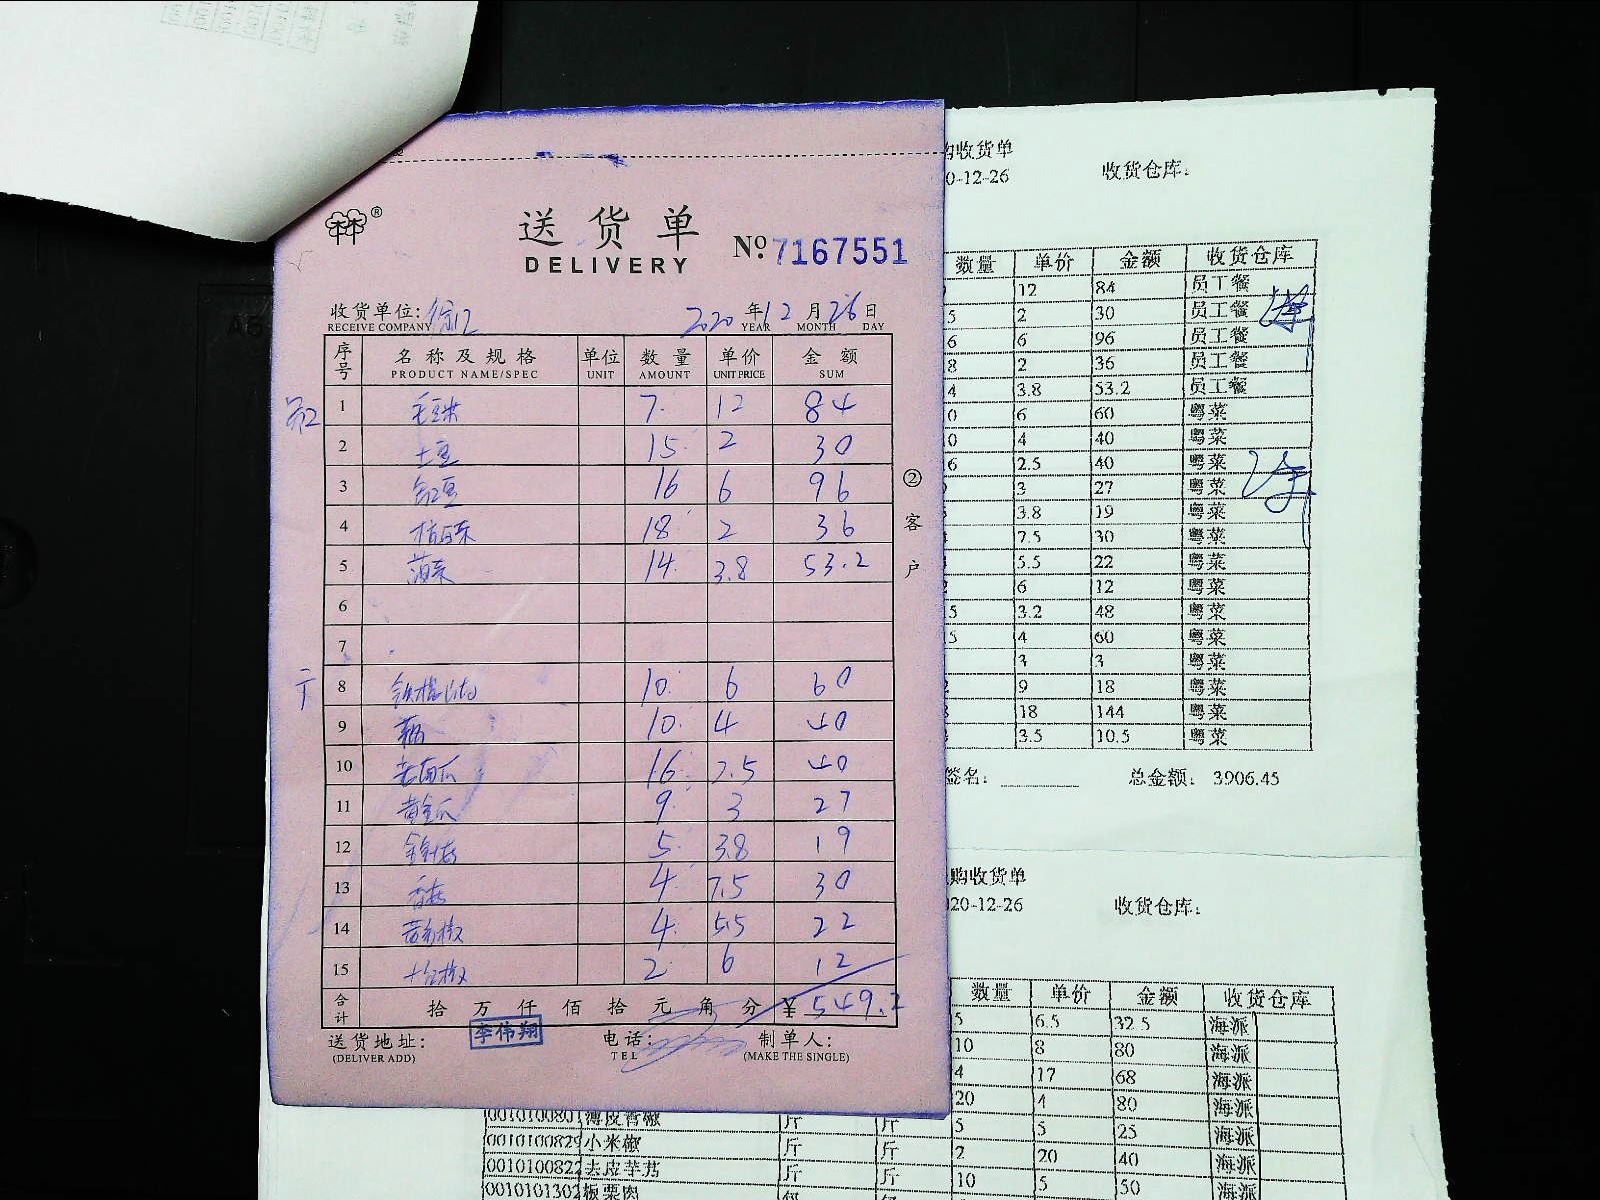 送货单
DELIVERY
№:7167551
收货单位:
RECEIVE COMPANY
2020年12月26日
YEAR MONTH DAY
序号 名称及规格 单位 数量 单价 金额
PRODUCT NAME/SPEC UNIT AMOUNT UNIT PRICE SUM
1 毛豆米 7 12 84
2 土豆 15 2 30
3 豇豆 16 6 96
4 杭白菜 18 2 36
5 菠菜 14 3.8 53.2
6
7
8 10 6 60
9 藕 10 4 40
10 老南瓜 16 2.5 40
11 黄金瓜 9 3 27
12 金针菇 5 3.8 19
13 香菇 4 7.5 30
14 黄彩椒 4 5.5 22
15 2 6 12
合计 拾万仟佰拾元角分 ¥549.2
送货地址: 李伟翔 电话: 制单人:
(DELIVER ADD) TEL (MAKE THE SINGLE)
②客户
收货单
0-12-26 收货仓库:
数量 单价 金额 收货仓库
12 84 员工餐
5 2 30 员工餐
6 6 96 员工餐
8 2 36 员工餐
4 3.8 53.2 员工餐
0 6 60 粤菜
0 4 40 粤菜
6 2.5 40 粤菜
3 27 粤菜
3.8 19 粤菜
7.5 30 粤菜
5.5 22 粤菜
6 12 粤菜
5 3.2 48 粤菜
5 4 60 粤菜
3 3 粤菜
9 18 粤菜
18 144 粤菜
3.5 10.5 粤菜
签名: 总金额: 3906.45
购收货单
020-12-26 收货仓库:
数量 单价 金额 收货仓库
5 6.5 32.5 海派
10 8 80 海派
4 17 68 海派
20 4 80 海派
0010100801 薄皮青椒 斤 斤 5 5 25 海派
0010100829 小米椒 斤 斤 2 20 40 海派
0010100822 去皮莘荠 斤 斤 10 5 50 海派
0010101302 板栗肉